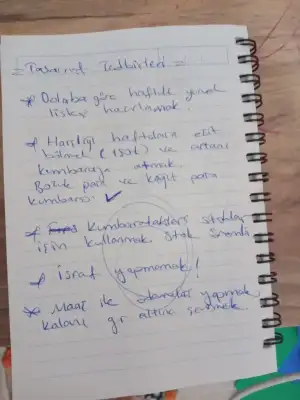 = Tasarruf Tedbirleri =
* Dolaba göre haftalık yemek
listesi hazırlamak.
* Harçlığı haftalara eşit
bölmek (150t) ve artanı
kumbaraya atmak.
Bozuk para ve kağıt para
kumbarası ✓
* Kumbaradakileri stoklar
için kullanmak. Stok önemli
* israf yapmamak!
* Maaş ile ödemeleri yapmak,
kalanı gr altın çevirmek.